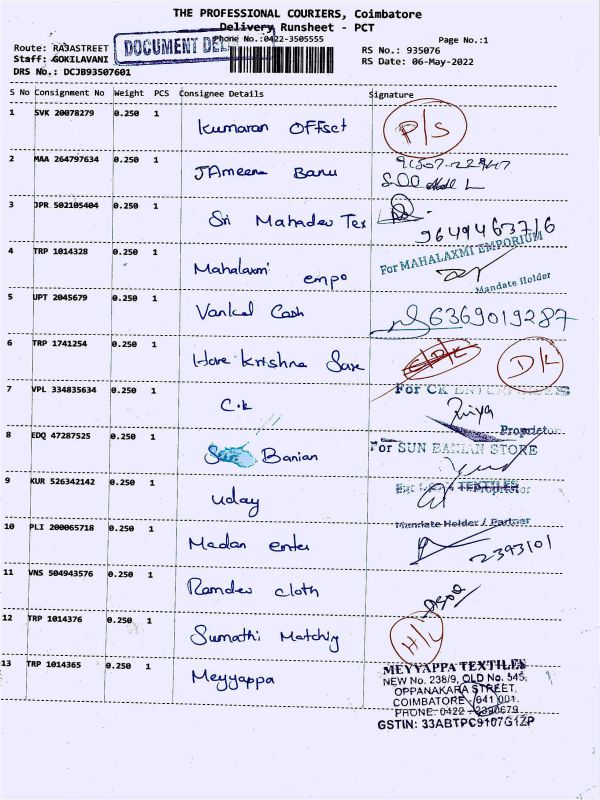 THE PROFESSIONAL COURIERS, Coimbatore
Delivery Runsheet - PCT
Phone No.:0422-3505555
Page No.:1
Route: RAJASTREET
DOCUMENT DEL
RS No.: 935076
Staff: GOKILAVANI
RS Date: 06-May-2022
DRS No.: DCJB93507601
S No Consignment No Weight PCS Consignee Details Signature
1 SVK 20078279 0.250 1 Kumaran Offset P/S
2 MAA 264797634 0.250 1 JAmeena Banu
3 JPR 502105404 0.250 1 Sri Mahadev Tex
9649463716
4 TRP 1014328 0.250 1 Mahalaxmi empo For MAHALAXMI EMPORIUM
Mandate Holder
5 UPT 2045679 0.250 1 Vankal Cash 6369019287
6 TRP 1741254 0.250 1 Hare Krishna Sare D/L
7 VPL 334835634 0.250 1 C.K For CK ENTERPRISES
Priya
Proprietor
8 EDQ 47287525 0.250 1 Banian For SUN BANIAN STORE
Proprietor
9 KUR 526342142 0.250 1 Uday TEXTILES
Mandate Holder / Partner
10 PLI 200065718 0.250 1 Madan enter 2393101
11 VNS 504943576 0.250 1 Ramdev cloth
12 TRP 1014376 0.250 1 Sumathi Matching H/L
13 TRP 1014365 0.250 1 Meyyappa MEYYAPPA TEXTILES
NEW No. 238/9, OLD No. 545,
OPPANAKARA STREET,
COIMBATORE 641 001.
PHONE: 0422 - 2390679
GSTIN: 33ABTPC9107G1ZP